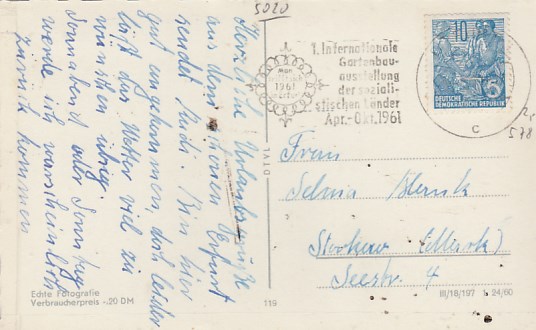 5020
Herzliche Urlaubsgrüße
aus dem schönen Erfurt
sendet Rudi. Bin hier
gut angekommen, doch leider
läßt das Wetter viel zu
wünschen übrig.
Sonnabend oder Sonntag
werde ich warscheinlich
zurück kommen
Echte Fotografie
Verbraucherpreis -.20 DM
119
1. Internationale
Gartenbau-
ausstellung
der soziali-
stischen Länder
Apr.-Okt. 1961
1961
10
5
DEUTSCHE
DEMOKRATISCHE REPUBLIK
c
578
Frau
Selma
Storkow (Mark)
Seestr. 4
III/18/197 1 24/60